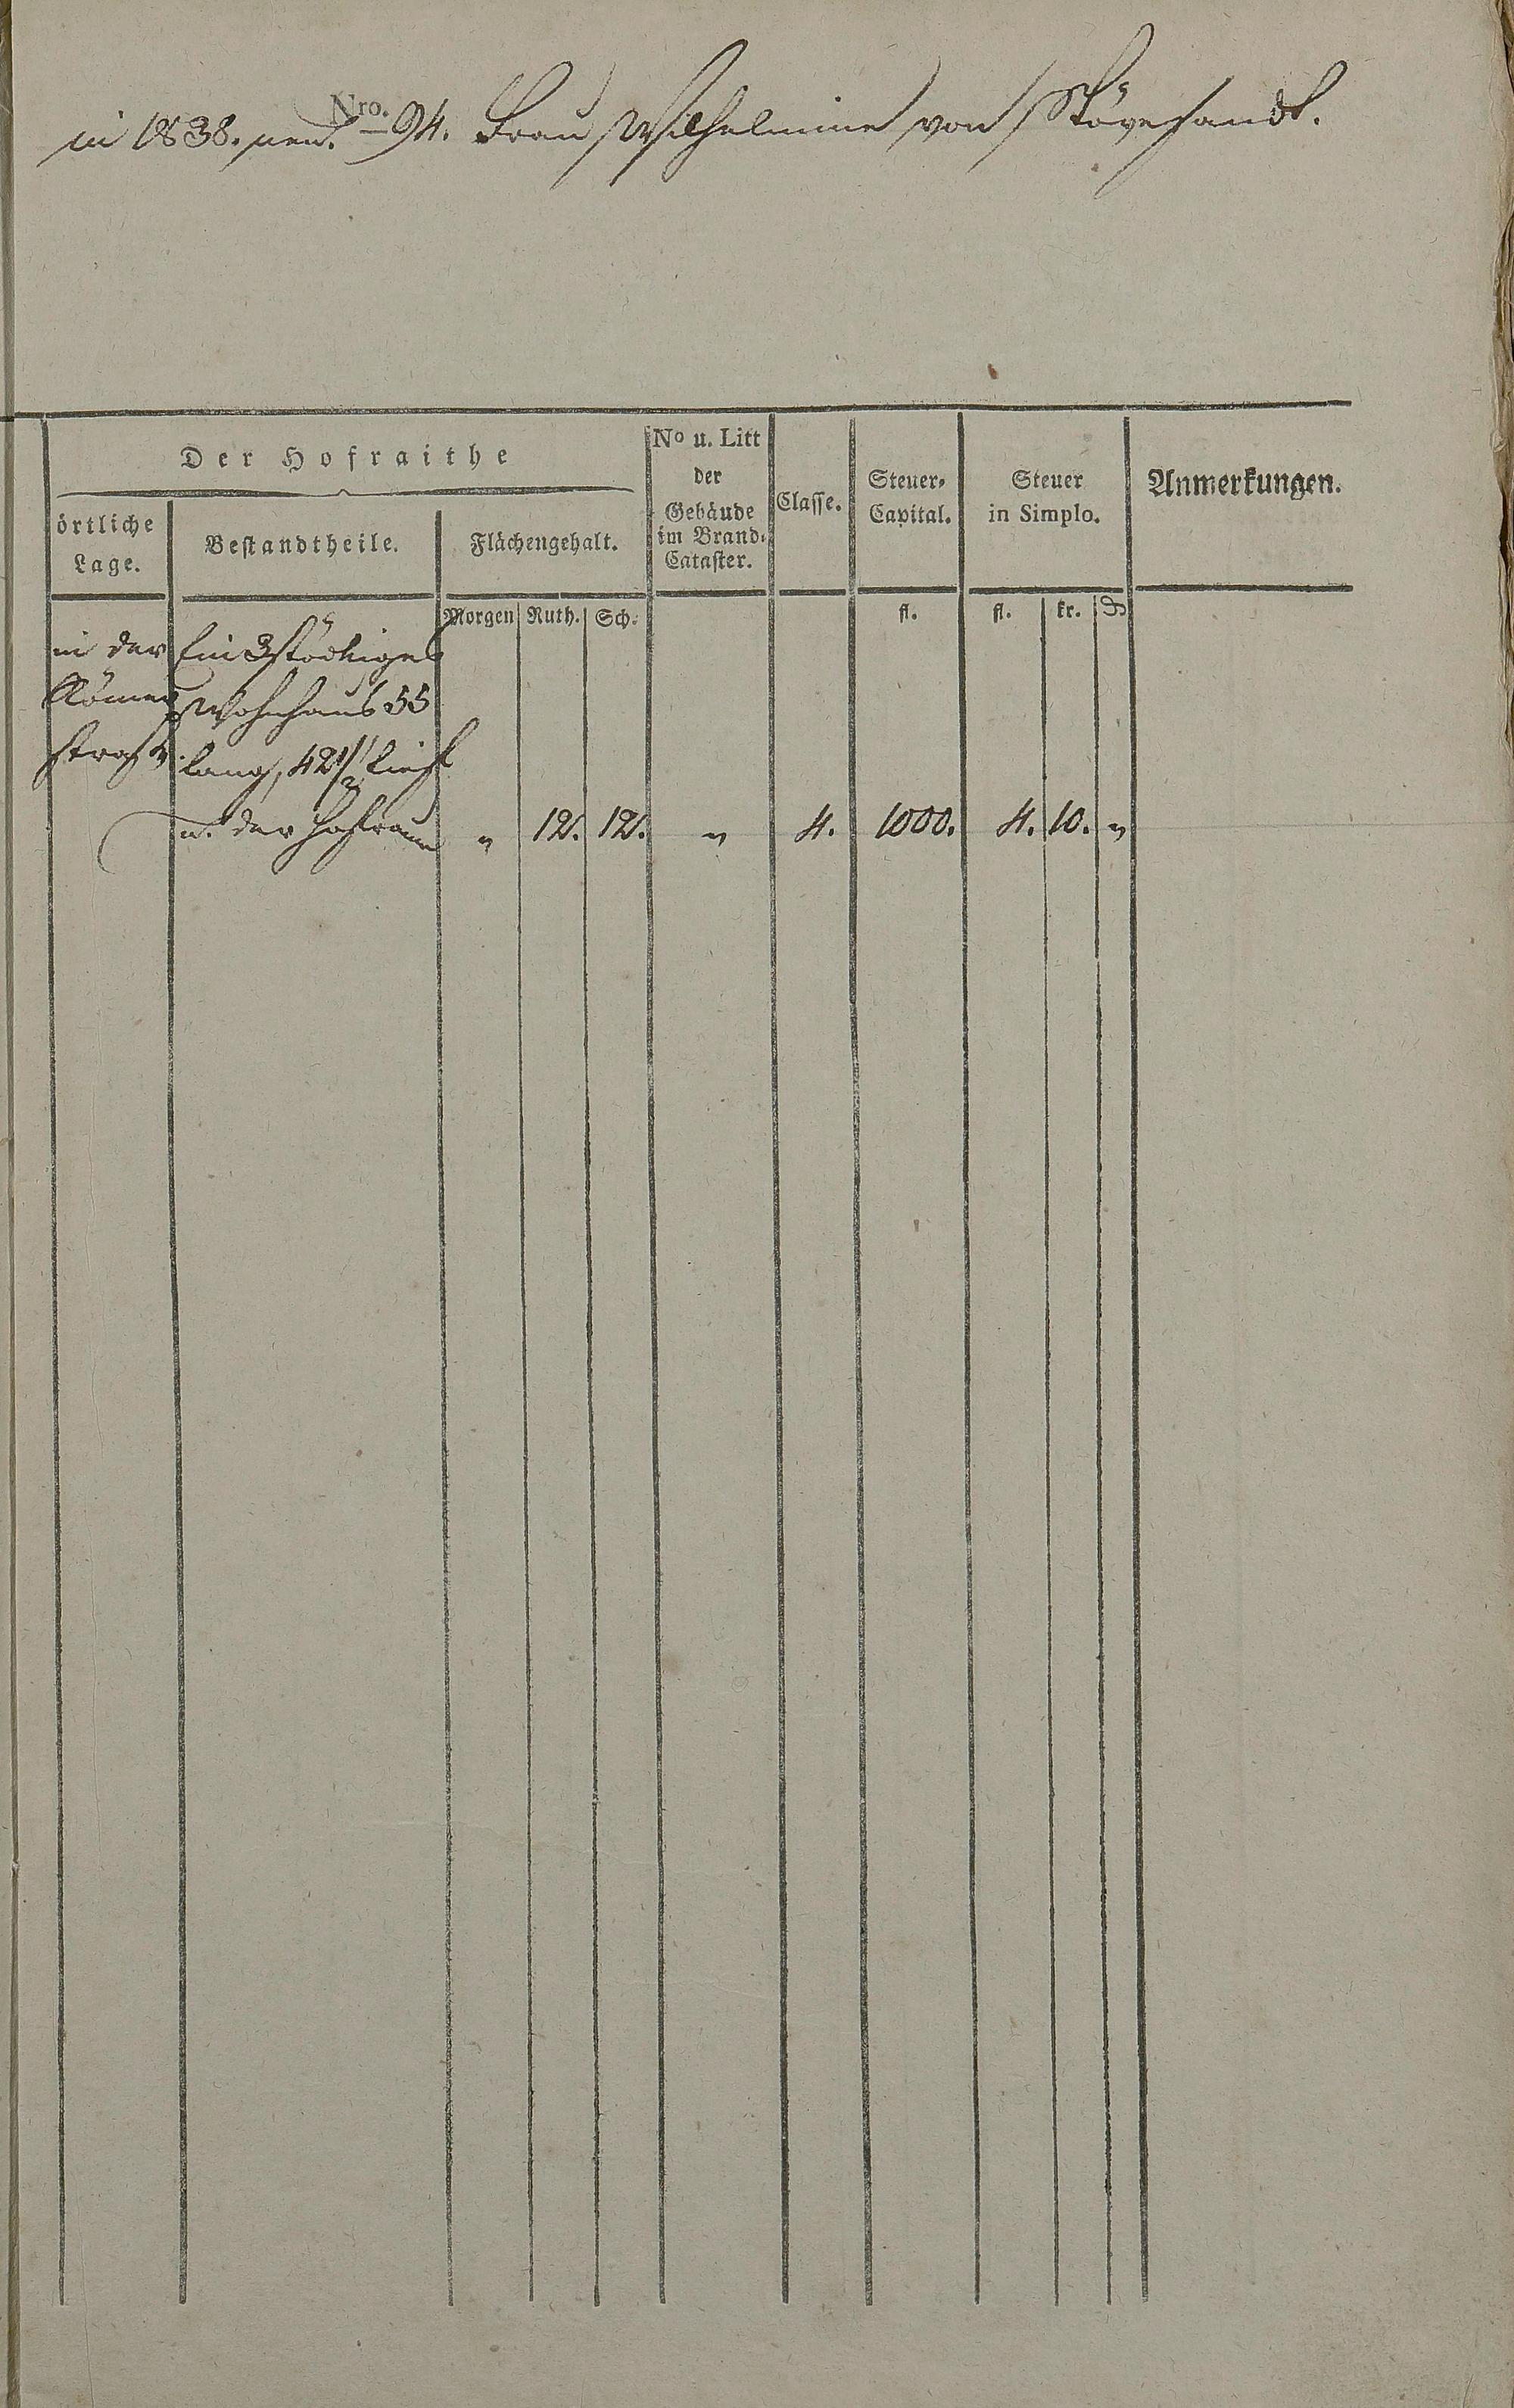 in 1838. neu. Nro. 94. Frau Wilhelmine von Stövesandt.
Der Hofraithe
No u. Litt der Gebäude im Brand-Cataster.
Classe.
Steuer-Capital.
Steuer in Simplo.
Anmerkungen.
örtliche Lage.
Bestandtheile.
Flächengehalt.
Morgen Ruth. Sch. fl. fl. kr. ₰
in der Ein 3stöckiges
Römer Wohnhaus 55
straße. lang, 42 1/2' tief
u. der Hofraum " 12. 12. " 4. 1000. 4. 10. "